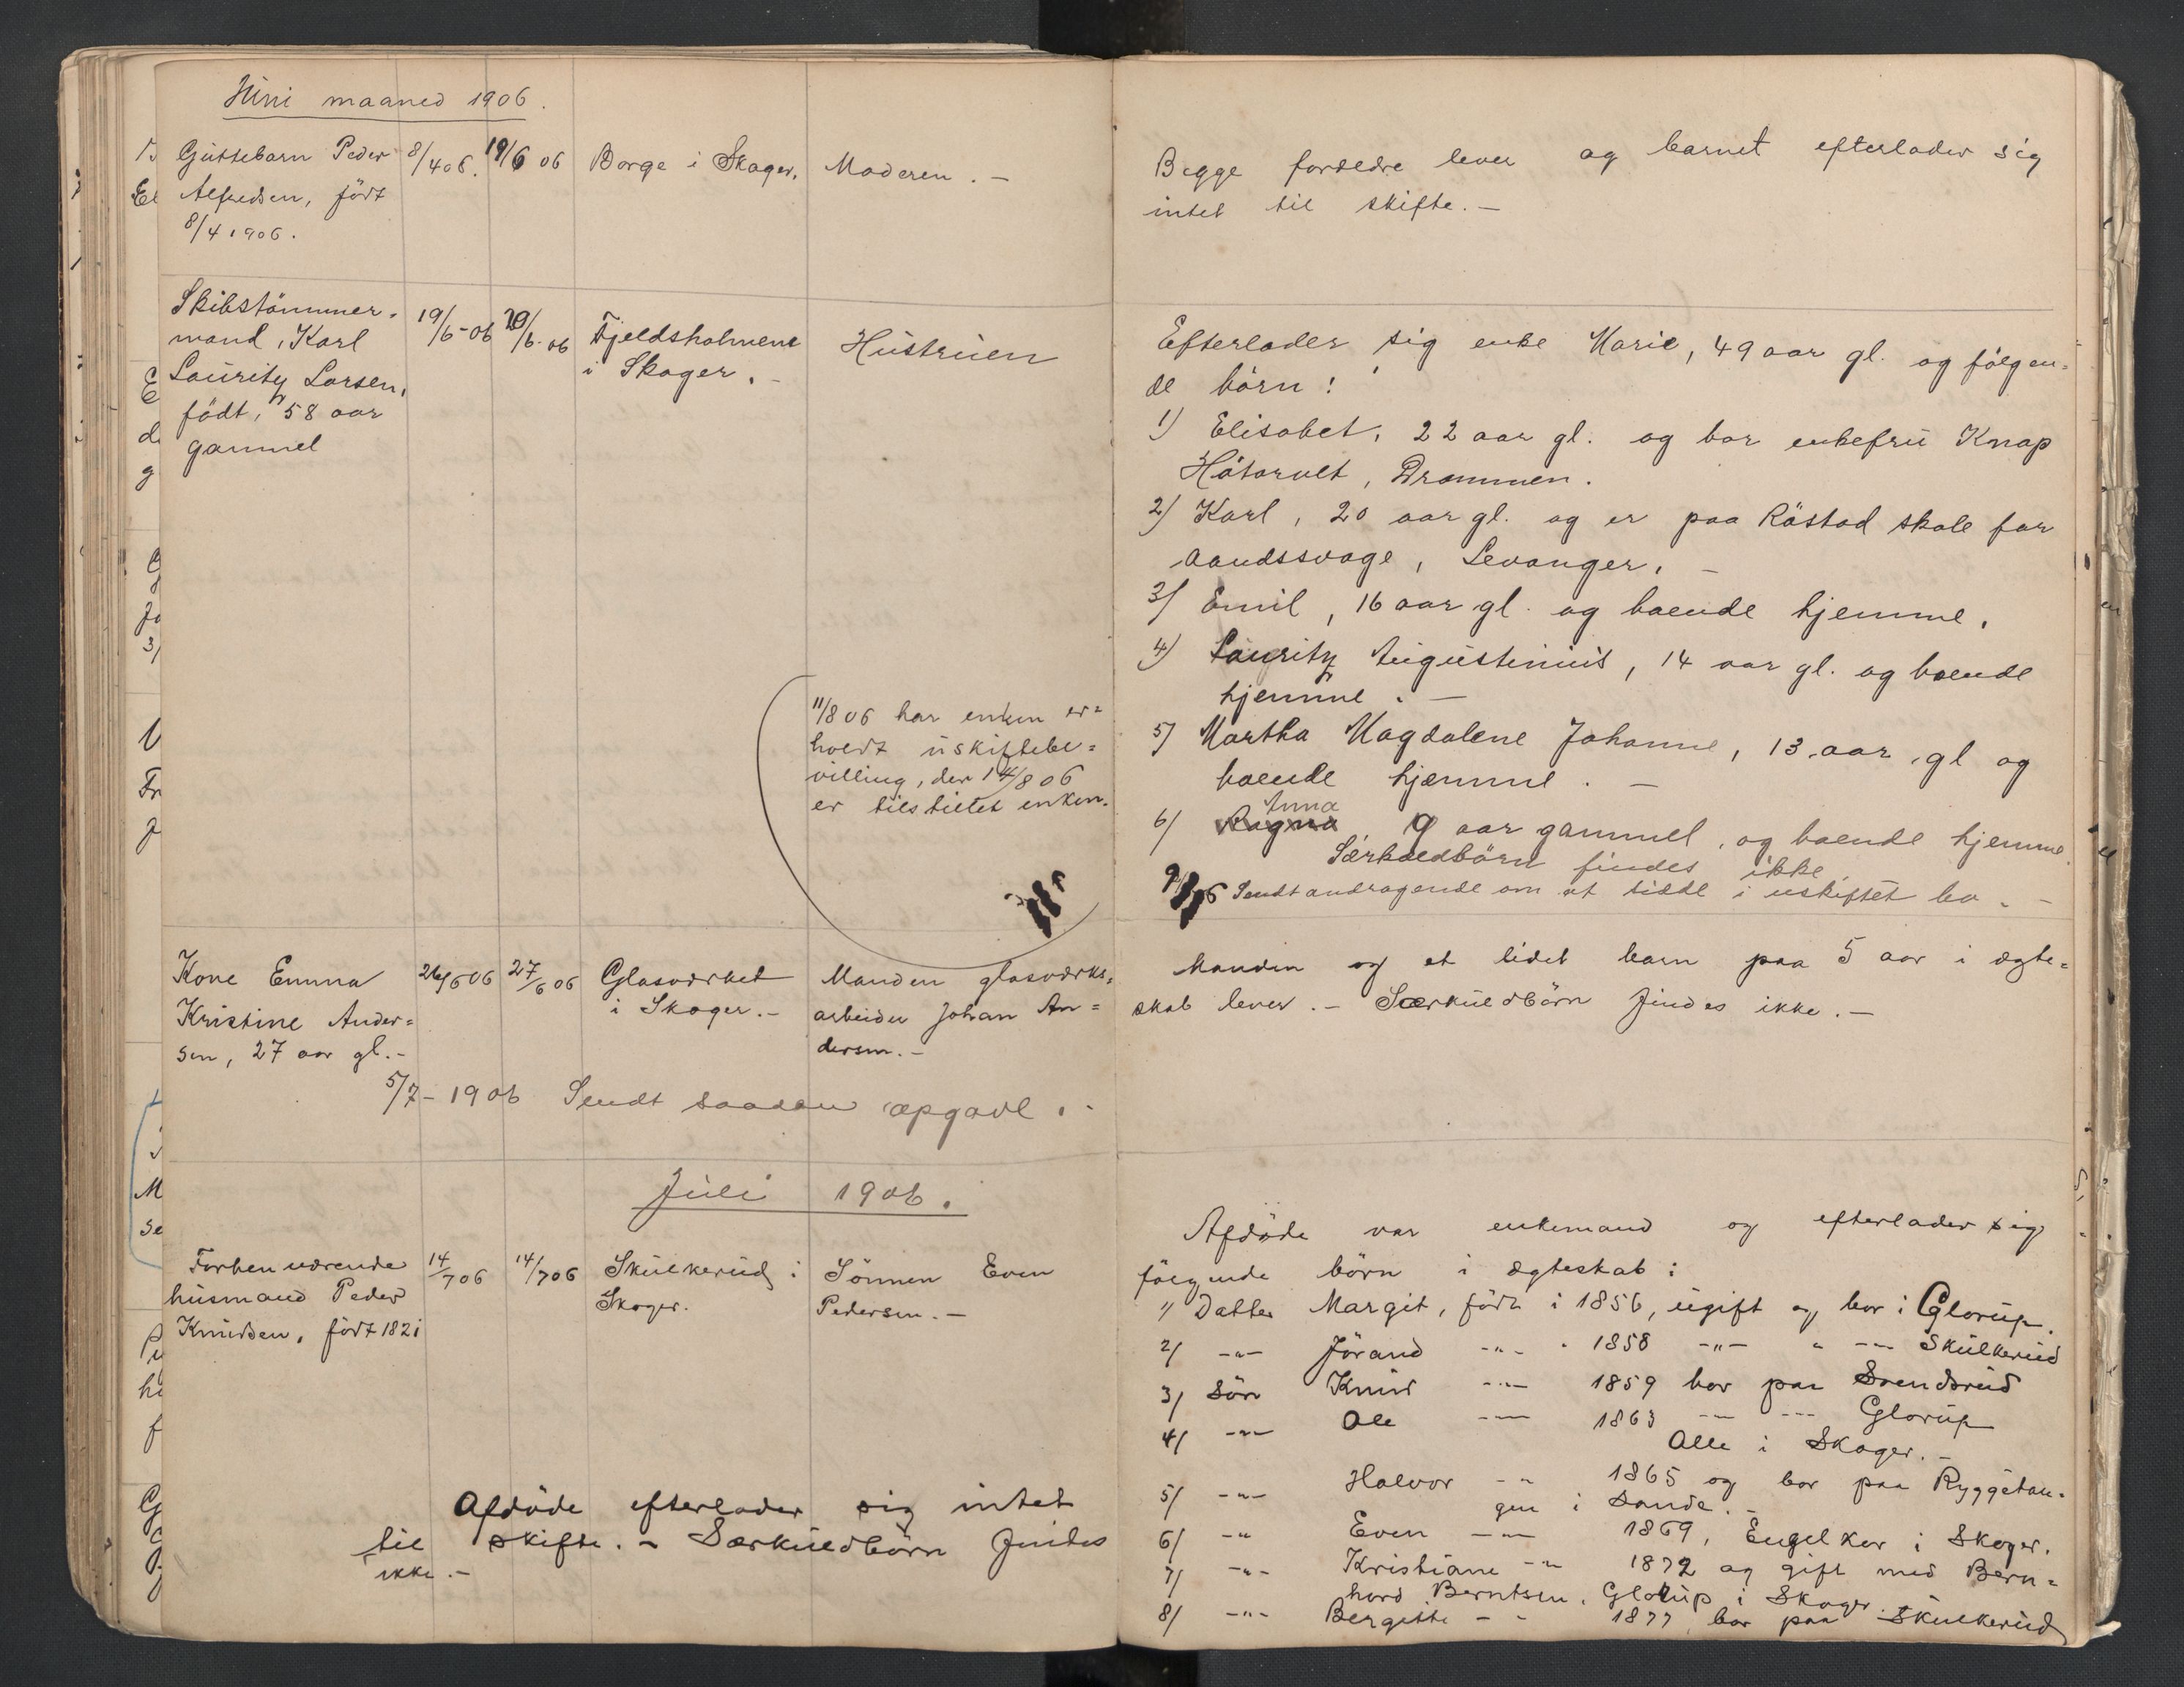 Juni maaned 1906.
Guttebarn Peder
Alfredsen, født
8/4 1906.
8/4 06.
19/6 06
Borge i Skoger.
Moderen. —
Begge forældre lever og barnet efterlader sig
intet til skifte. —
Skibstømmer-
mand, Karl
Lauritz Larsen,
født, 58 aar
gammel
19/6-06
20/6-06
Fjeldsholmene
i Skoger. -
Hustruen
Efterlader sig enke Marie, 49 aar gl. og følgen-
de børn:
1) Elisabet, 22 aar gl. og bor enkefru Knap
Høtorvet, Drammen.
2) Karl, 20 aar gl. og er paa Røstad skole for
aandssvage, Levanger. —
3) Emil, 16 aar gl. og boende hjemme.
4) Lauritz Augustinius, 14 aar gl. og boende
hjemme. —
5) Martha Magdalene Johanne, 13 aar gl og
boende hjemme. —
Anna
6) Ragna, 9 aar gammel, og boende hjemme.
Særkuldbørn findes ikke
Sendt andragende om at sidde i uskiftet bo. —
11/8 06 har enken er-
holdt uskiftebe-
villing, der 14/8 06
er tilstillet enken.
Kone Emma
Kristine Ander-
sen, 27 aar gl. -
26/6 06
27/6 06
Glasværket
i Skoger. -
Manden glasværks-
arbeider Johan An-
dersen. -
Manden og et lidet barn paa 5 aar i ægte-
skab lever. - Særkuldbørn findes ikke. —
5/7 - 1906 Sendt saadan opgave. -
Juli 1906.
Forhenværende
husmand Peder
Knudsen, født 1821
14/7 06
14/7 06
Skulkerud i
Skoger.
Sønnen Even
Pedersen. —
Afdøde var enkemand og efterlader sig
følgende børn i ægteskab:
1) Datter Margit, født i 1856, ugift og bor i Glorup.
2) -"- Jørand -"- " 1858 -"- " -"- Skulkerud
3) Søn Knud -"- 1859 bor paa Svendsrud
4) -"- Ole -"- 1863 -"- -"- Glorup
Alle i Skoger. -
5) -"- Halvor -"- 1865 og bor paa Ryggetan-
gen i Sande. -
6) -"- Even -"- 1869, Engelker i Skoger.
7) -"- Kristiane -"- 1872 og gift med Bern-
hard Berntsen, Glorup i Skoger
8) -"- Bergitte - - 1877, bor paa Skulkerud
Afdøde efterlader sig intet
til skifte. - Særkuldbørn findes
ikke. —